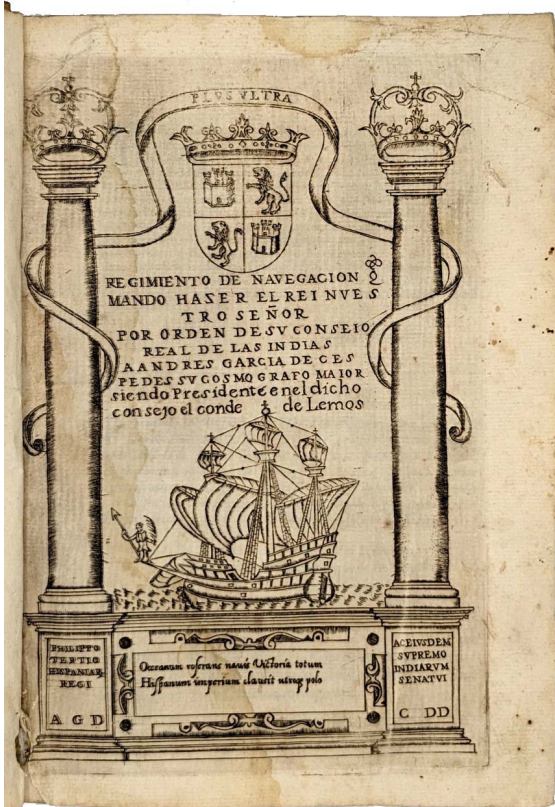 PLUS VLTRA
REGIMIENTO DE NAVEGACION
MANDO HASER EL REI NVES
TRO SEÑOR
POR ORDEN DE SV CONSEIO
REAL DE LAS INDIAS
A ANDRES GARCIA DE CES
PEDES SV COSMOGRAFO MAIOR
siendo Presidente enel dicho
consejo el conde de Lemos
PHILIPPO
TERTIO
HISPANIAR,
REGI
A G D
Oceanum reserans nauis Victoria totum
Hispanum imperium clausit utroq polo
AC EIVSDEM
SVPREMO
INDIARVM
SENATVI
C DD